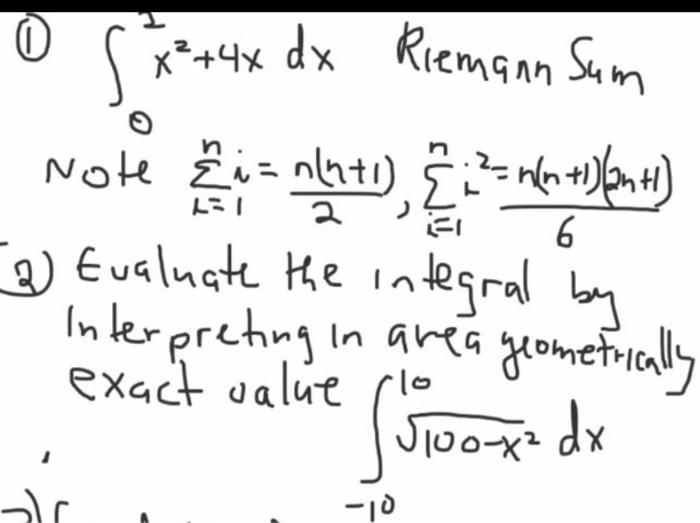 ① ∫₀² x²+4x dx Riemann Sum
Note Σⁿᵢ₌₁ i = n(n+1)/2 , Σⁿᵢ₌₁ i² = n(n+1)(2n+1)/6
② Evaluate the integral by
Interpreting in area geometrically
exact value ∫₋₁₀¹⁰ √100-x² dx